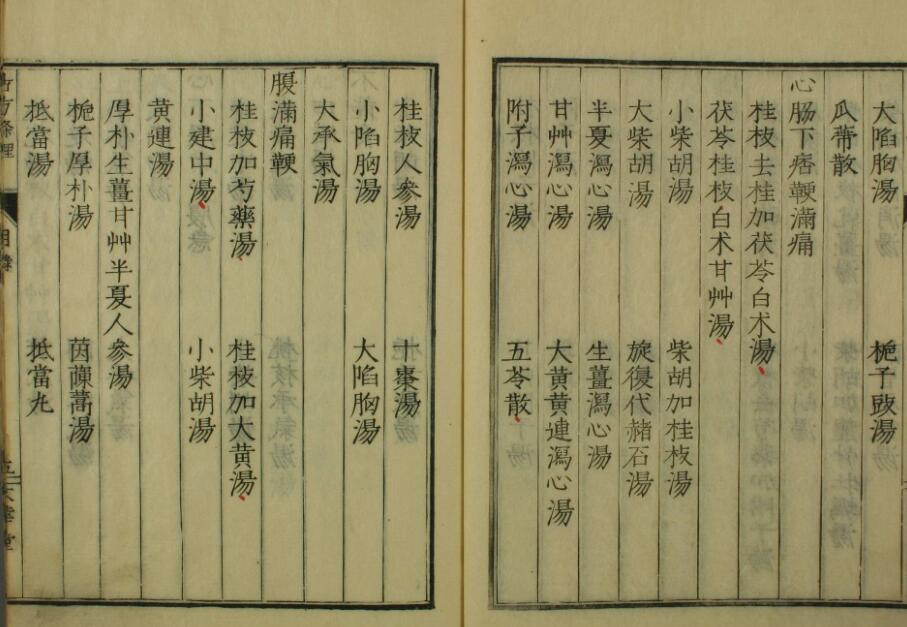 大陷胸湯　梔子豉湯
瓜蔕散
心腸下痞鞕滿痛
桂枝去桂加茯苓白术湯
茯苓桂枝白术甘艸湯
小柴胡湯　柴胡加桂枝湯
大柴胡湯　旋復代赭石湯
半夏瀉心湯　生薑瀉心湯
甘艸瀉心湯　大黃黃連瀉心湯
附子瀉心湯　五苓散
桂枝人參湯　十棗湯
小陷胸湯　大陷胸湯
大承氣湯
腹滿痛鞕
桂枝加芍藥湯　桂枝加大黃湯
小建中湯　小柴胡湯
黃連湯
厚朴生薑甘艸半夏人參湯
梔子厚朴湯　茵蔯蒿湯
抵當湯　抵當丸